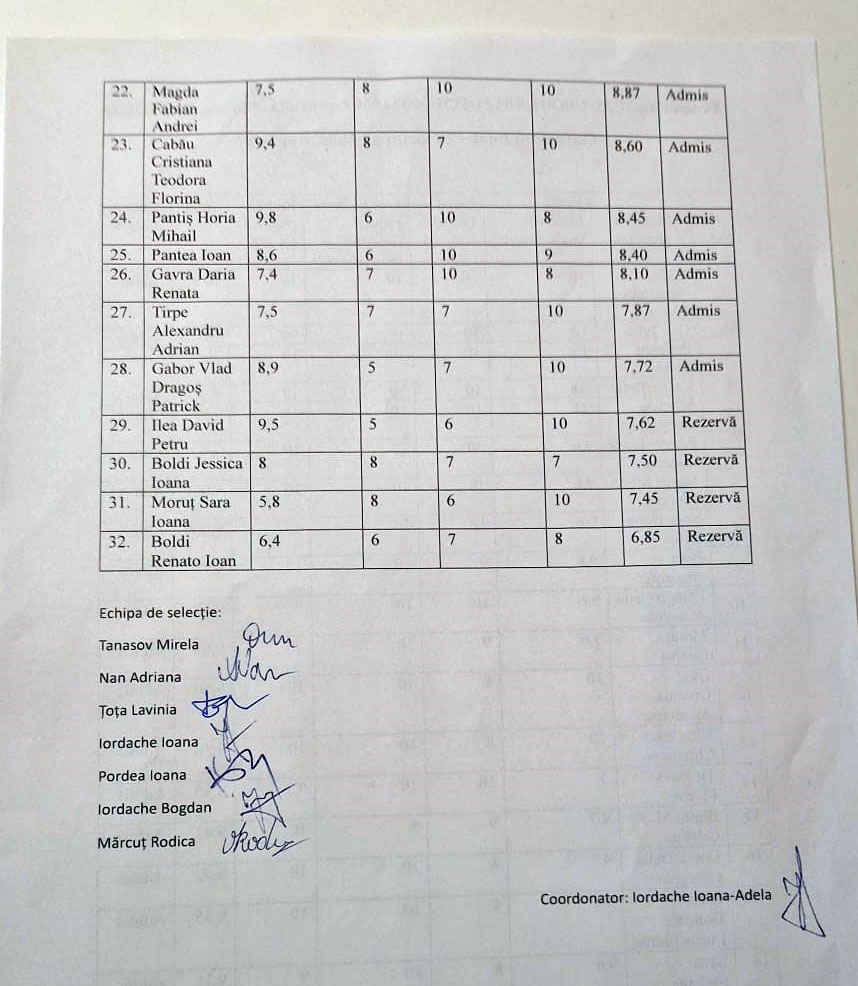 22. Magda 7,5 8 10 10 8,87 Admis
Fabian
Andrei
23. Cabău 9,4 8 7 10 8,60 Admis
Cristiana
Teodora
Florina
24. Pantiș Horia 9,8 6 10 8 8,45 Admis
Mihail
25. Pantea Ioan 8,6 6 10 9 8,40 Admis
26. Gavra Daria 7,4 7 10 8 8,10 Admis
Renata
27. Tirpe 7,5 7 7 10 7,87 Admis
Alexandru
Adrian
28. Gabor Vlad 8,9 5 7 10 7,72 Admis
Dragoș
Patrick
29. Ilea David 9,5 5 6 10 7,62 Rezervă
Petru
30. Boldi Jessica 8 8 7 7 7,50 Rezervă
Ioana
31. Moruț Sara 5,8 8 6 10 7,45 Rezervă
Ioana
32. Boldi 6,4 6 7 8 6,85 Rezervă
Renato Ioan
Echipa de selecție:
Tanasov Mirela
Nan Adriana
Țoța Lavinia
Iordache Ioana
Pordea Ioana
Iordache Bogdan
Mărcuț Rodica
Coordonator: Iordache Ioana-Adela